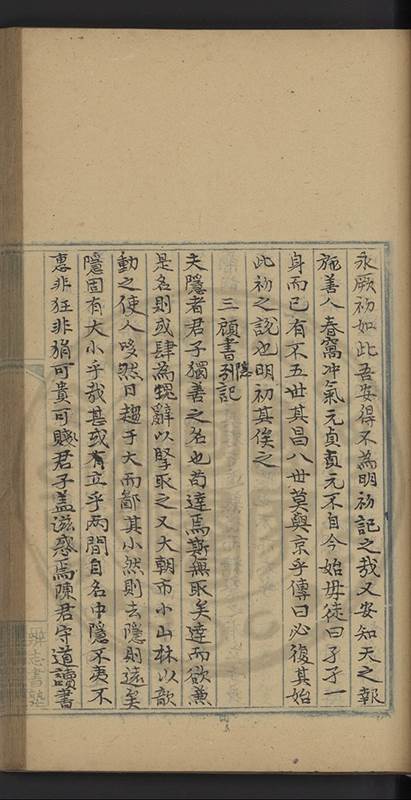 永厥初如此吾安得不為明初記之我又安知天之報
施善人春窩冲氣元貞貞元不自今始毋徒曰孑孑一
身而已有不五世其昌八世莫與京乎傳曰必復其始
此初之說也明初其俟之
三顧書隱記
夫隱者君子獨善之名也苟達焉斯無取矣達而欲兼
是名則或肆為 辭以堅取之又大朝市小山林以歆
動之使人唆然日趨于大而鄙其小然則去隱則遠矣
隱固有大小乎哉甚或有立乎两間自名中隱不夷不
惠非狂非狷可貴可賤君子盖滋惑焉陳君守道讀書